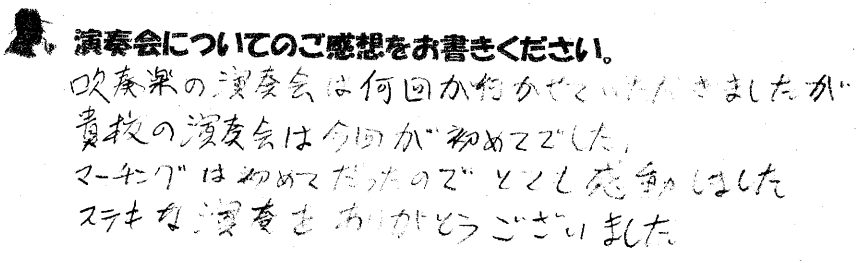 演奏会についてのご感想をお書きください。
吹奏楽の演奏会は何回か行かせていただきましたが
貴校の演奏会は今回が初めてでした。
マーチングは初めてだったのでとても感動しました
ステキな演奏をありがとうございました。